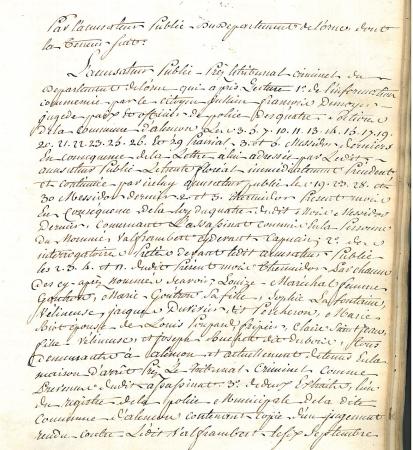 Par l'accusateur Public du Departement de l'orne dont
la teneur suit:
L'accusateur Public Près le tribunal criminel du
Departement de l'orne qui après Lecture 1.° de l'information
commencée par le citoyen julien françois
jugede paix et officier de police des quatre Sections
de la commune d'alencon Les 3. 6. 7. 10. 11. 13. 14. 15. 17. 19.
20. 21. 22. 23. 25. 26. et 29 prairial 3. et 5 Messidor derniers
En consequence de la Lettre à lui adressée par Ledit
accusateur Public Le trente floreal immediatement Precedent
et continuée par icelui accusateur public les 19. 23. 28. et
30 Messidor dernier 2 et 3 thermidor Present mois
En Consequence de la loy du quatre dudit Mois Messidor
Dernier Concernant L'assassinat commis en la Personne
du Nommé Valframbert 2.° de
interrogatoire Preté devant ledit accusateur Public
les 2. 3. 4. et 11 dudit Present mois thermidor Par chacun
des cy-après nommés Scavoir Louise Marechal femme
Gouton Marie Gouton sa fille Sophie La fontaine
fileuse jacque Duvivier dit Percheron Marie
épouse de Louis fripier Claire Saint jean
fille fileuse et joseph dit dubois tous
demeurants à alencon et actuellement detenus En la
maison d'arret Près Le tribunal Criminel Comme
Prevenus dudit assassinat 3.° de deux Extraits
du registre de la police Municipale de la dite
Commune d'alencon contenant copie d'un jugement
rendu contre Ledit Valframbert le six Septembre